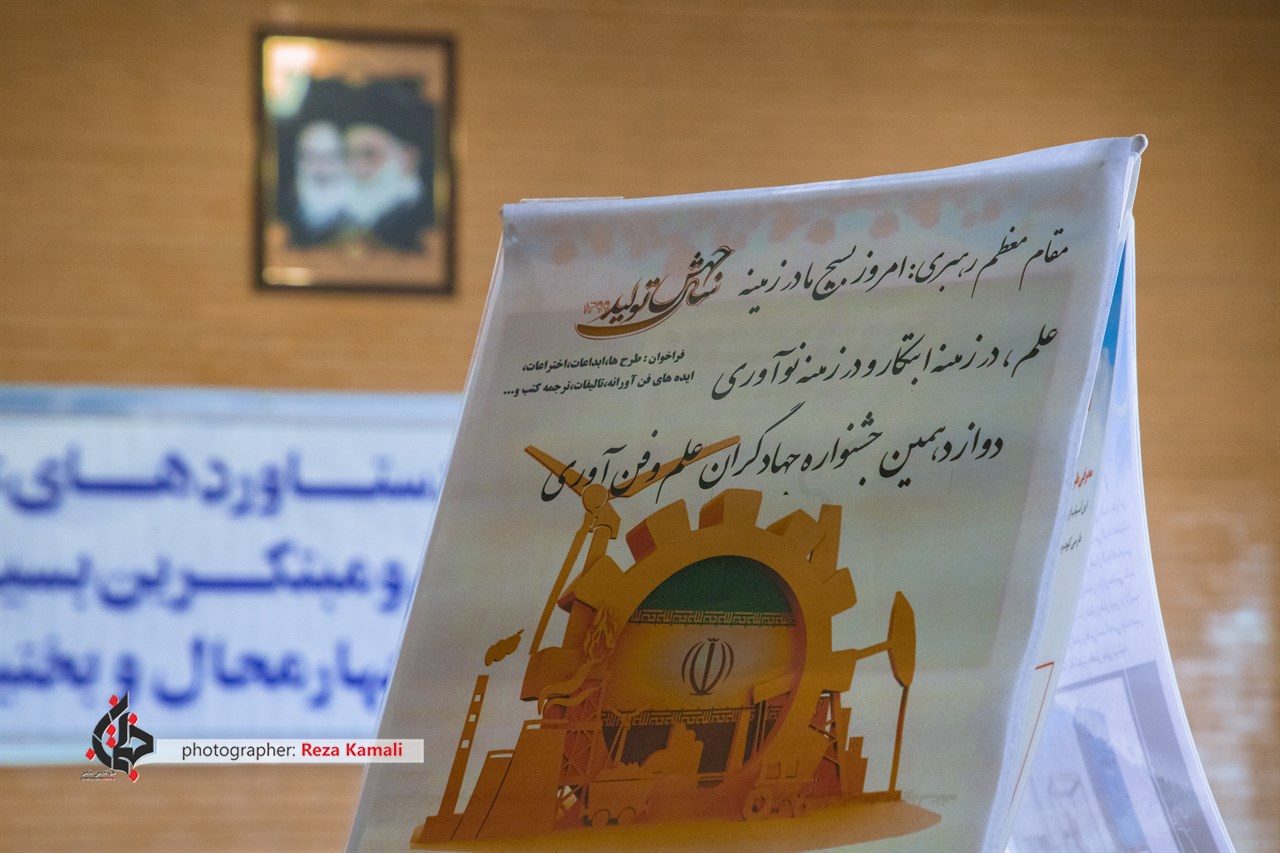 مقام معظم رهبری: امروز بسیج ما در زمینه
علم، در زمینه ابتکار و در زمینه نوآوری
سال جهش تولید
۱۳۹۹
فراخوان: طرح ها،ابداعات،اختراعات،
ایده های فن آورانه،تالیفات،ترجمه کتب و...
دوازدهمین جشنواره جهادگران علم و فن آوری
ستاوردهای
و مبتکرین بسی
هارمحال و بختی
photographer: Reza Kamali